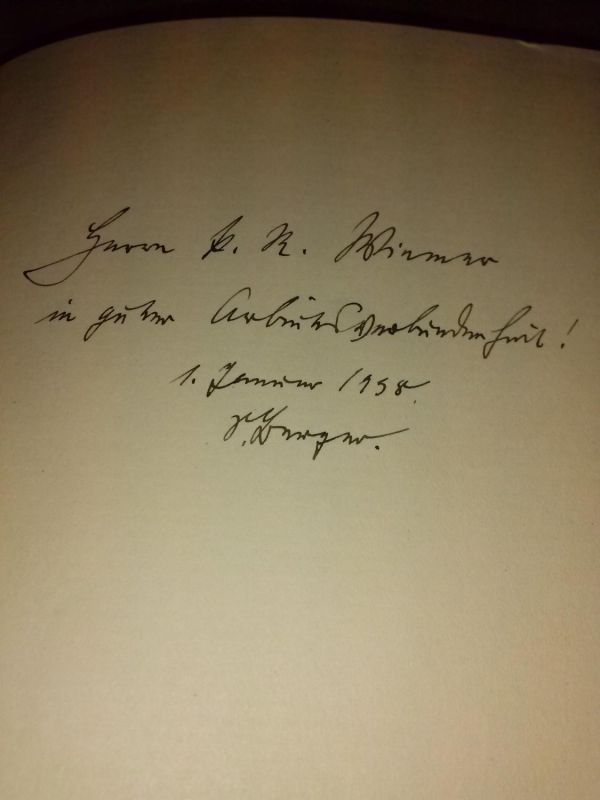 Herrn P. R. Wiemer
in guter Arbeitsverbundenheit!
1. Januar 1958.
Berger.